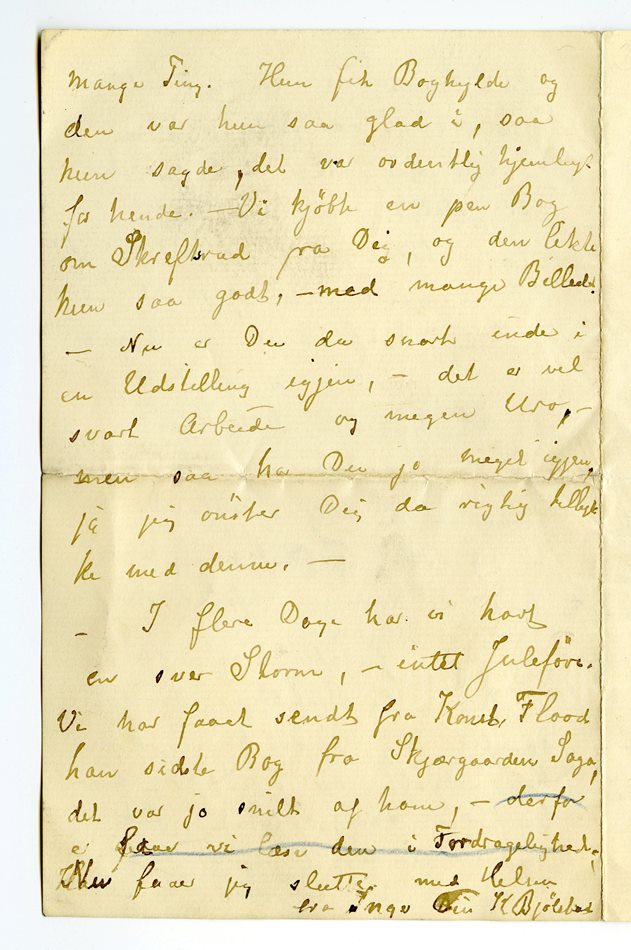 mange Ting. Hun fik Boghylde og
den var hun saa glad i, saa
hun sagde, det var ordentlig hjemligt
for hende. – Vi kjøbte en pen Bog
om Skrefsrud fra Dig, og den likte
hun saa godt, – med mange Billeder.
– Nu er Du da snart inde i
en Udstilling igjen, – det er vel
svart Arbeide og megen Uro, –
men saa har Du jo meget igjen,
ja jeg ønsker Dig da rigtig tillyk
ke med denne. –
– I flere Dage har vi havt
en svær Storm, – intet Juleføre.
Vi har faaet sendt fra Konst. Flood
han sidste Bog fra Skjærgaarden Saga,
det var jo snilt af ham, – derfor
faar vi læse den i Fordragelighed.
Nu faar jeg slutte med Helsen
fra Inga Din K Bjølstad